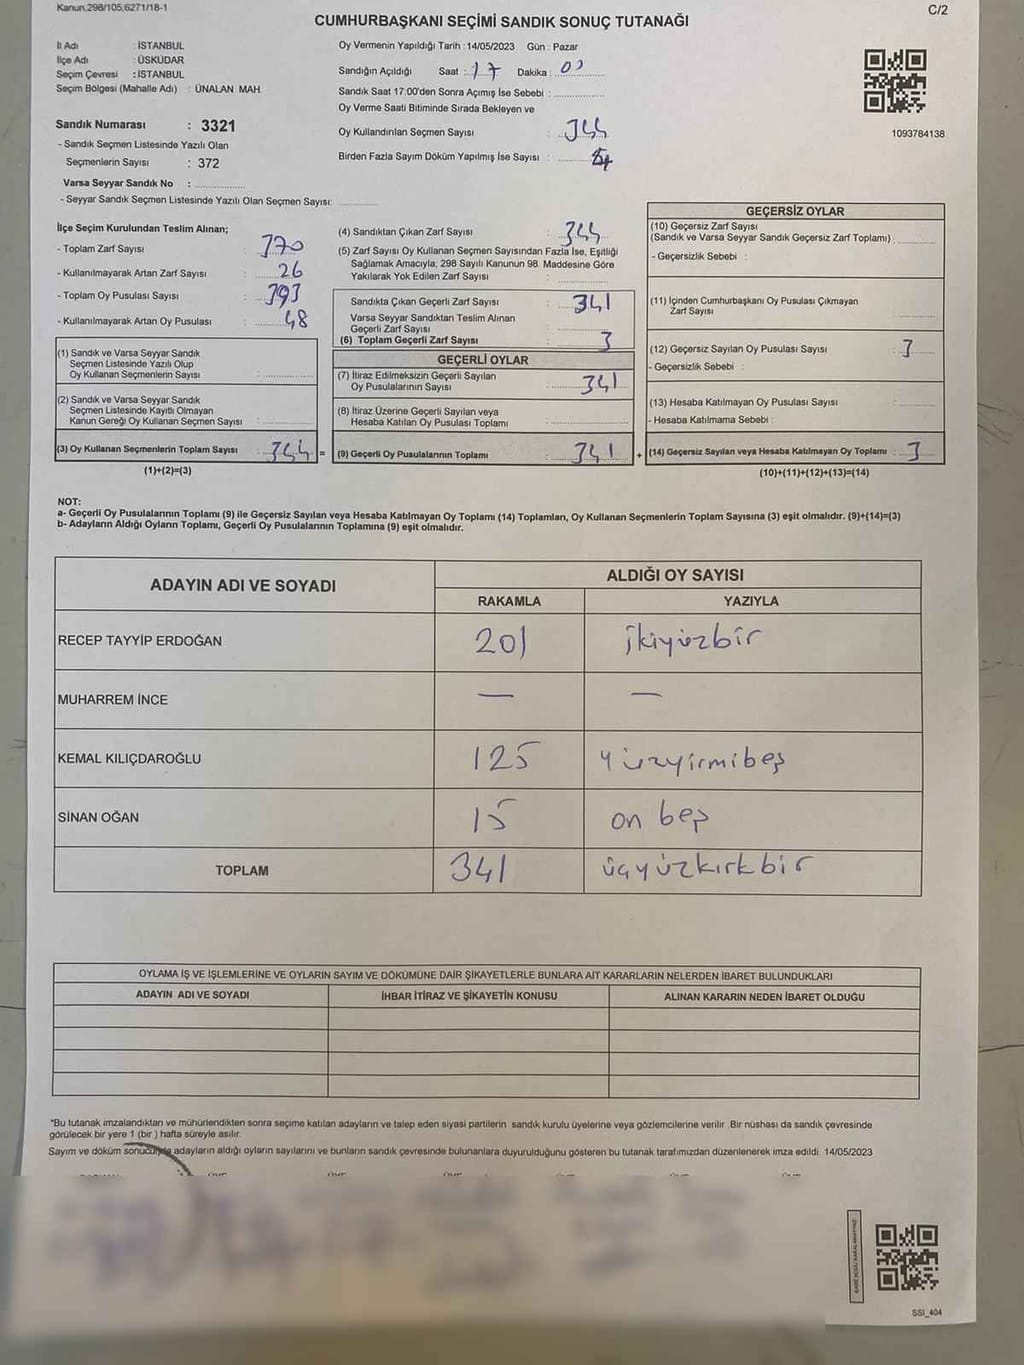 Kanun,298/105,6271/18-1
C/2
CUMHURBAŞKANI SEÇİMİ SANDIK SONUÇ TUTANAĞI
İl Adı : İSTANBUL
İlçe Adı : ÜSKÜDAR
Seçim Çevresi : İSTANBUL
Seçim Bölgesi (Mahalle Adı) : ÜNALAN MAH.
Sandık Numarası : 3321
- Sandık Seçmen Listesinde Yazılı Olan
Seçmenlerin Sayısı : 372
Varsa Seyyar Sandık No :
- Seyyar Sandık Seçmen Listesinde Yazılı Olan Seçmen Sayısı:
Oy Vermenin Yapıldığı Tarih :14/05/2023 Gün : Pazar
Sandığın Açıldığı Saat : 17 Dakika :
Sandık Saat 17:00'den Sonra Açımış İse Sebebi :
Oy Verme Saati Bitiminde Sırada Bekleyen ve
Oy Kullandırılan Seçmen Sayısı : 344
Birden Fazla Sayım Döküm Yapılmış İse Sayısı :
1093784138
İlçe Seçim Kurulundan Teslim Alınan;
- Toplam Zarf Sayısı : 370
- Kullanılmayarak Artan Zarf Sayısı : 26
- Toplam Oy Pusulası Sayısı : 393
- Kullanılmayarak Artan Oy Pusulası : 48
(1) Sandık ve Varsa Seyyar Sandık
Seçmen Listesinde Yazılı Olup
Oy Kullanan Seçmenlerin Sayısı :
(2) Sandık ve Varsa Seyyar Sandık
Seçmen Listesinde Kayıtlı Olmayan
Kanun Gereği Oy Kullanan Seçmen Sayısı :
(3) Oy Kullanan Seçmenlerin Toplam Sayısı : 344 =
(1)+(2)=(3)
(4) Sandıktan Çıkan Zarf Sayısı : 344
(5) Zarf Sayısı Oy Kullanan Seçmen Sayısından Fazla İse, Eşitliği
Sağlamak Amacıyla, 298 Sayılı Kanunun 98. Maddesine Göre
Yakılarak Yok Edilen Zarf Sayısı :
Sandıkta Çıkan Geçerli Zarf Sayısı : 341
Varsa Seyyar Sandıktan Teslim Alınan
Geçerli Zarf Sayısı :
(6) Toplam Geçerli Zarf Sayısı : 3
GEÇERLİ OYLAR
(7) İtiraz Edilmeksizin Geçerli Sayılan
Oy Pusulalarının Sayısı : 341
(8) İtiraz Üzerine Geçerli Sayılan veya
Hesaba Katılan Oy Pusulası Toplamı :
(9) Geçerli Oy Pusulalarının Toplamı : 341 +
GEÇERSİZ OYLAR
(10) Geçersiz Zarf Sayısı
(Sandık ve Varsa Seyyar Sandık Geçersiz Zarf Toplamı) :
- Geçersizlik Sebebi :
(11) İçinden Cumhurbaşkanı Oy Pusulası Çıkmayan
Zarf Sayısı :
(12) Geçersiz Sayılan Oy Pusulası Sayısı : 3
- Geçersizlik Sebebi :
(13) Hesaba Katılmayan Oy Pusulası Sayısı :
- Hesaba Katılmama Sebebi :
(14) Geçersiz Sayılan veya Hesaba Katılmayan Oy Toplamı : 3
(10)+(11)+(12)+(13)=(14)
NOT:
a- Geçerli Oy Pusulalarının Toplamı (9) ile Geçersiz Sayılan veya Hesaba Katılmayan Oy Toplamı (14) Toplamları, Oy Kullanan Seçmenlerin Toplam Sayısına (3) eşit olmalıdır. (9)+(14)=(3)
b- Adayların Aldığı Oyların Toplamı, Geçerli Oy Pusulalarının Toplamına (9) eşit olmalıdır.
ADAYIN ADI VE SOYADI ALDIĞI OY SAYISI
RAKAMLA YAZIYLA
RECEP TAYYİP ERDOĞAN 201 ikiyüzbir
MUHARREM İNCE — —
KEMAL KILIÇDAROĞLU 125 yüzyirmibeş
SİNAN OĞAN 15 on beş
TOPLAM 341 üçyüzkırkbir
OYLAMA İŞ VE İŞLEMLERİNE VE OYLARIN SAYIM VE DÖKÜMÜNE DAİR ŞİKAYETLERLE BUNLARA AİT KARARLARIN NELERDEN İBARET BULUNDUKLARI
ADAYIN ADI VE SOYADI İHBAR İTİRAZ VE ŞİKAYETİN KONUSU ALINAN KARARIN NEDEN İBARET OLDUĞU
*Bu tutanak imzalandıktan ve mühürlendikten sonra seçime katılan adayların ve talep eden siyasi partilerin sandık kurulu üyelerine veya gözlemcilerine verilir. Bir nüshası da sandık çevresinde
görülecek bir yere 1 (bir ) hafta süreyle asılır.
Sayım ve döküm sonucunda adayların aldığı oyların sayılarını ve bunların sandık çevresinde bulunanlara duyurulduğunu gösteren bu tutanak tarafımızdan düzenlenerek imza edildi. 14/05/2023
SSI_404